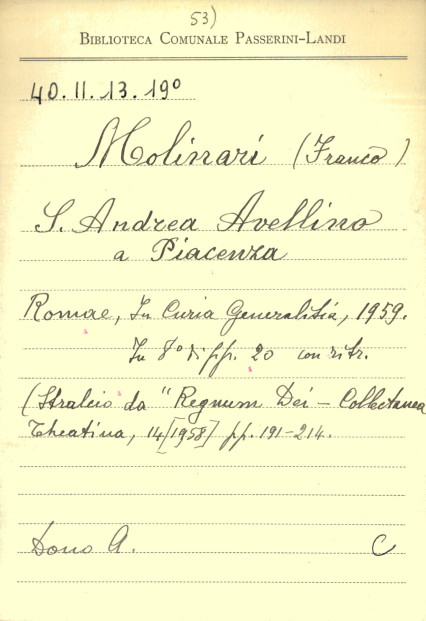 53)
BIBLIOTECA COMUNALE PASSERINI-LANDI
40.II.13.19º
Molinari (Franco)
S. Andrea Avellino
a Piacenza
Romae, In Curia Generalitia, 1959.
In 8º di pp. 20 con ritr.
(Stralcio da "Regnum Dei - Collectanea
Theatina, 14[1958] pp. 191-214.
Dono A. C